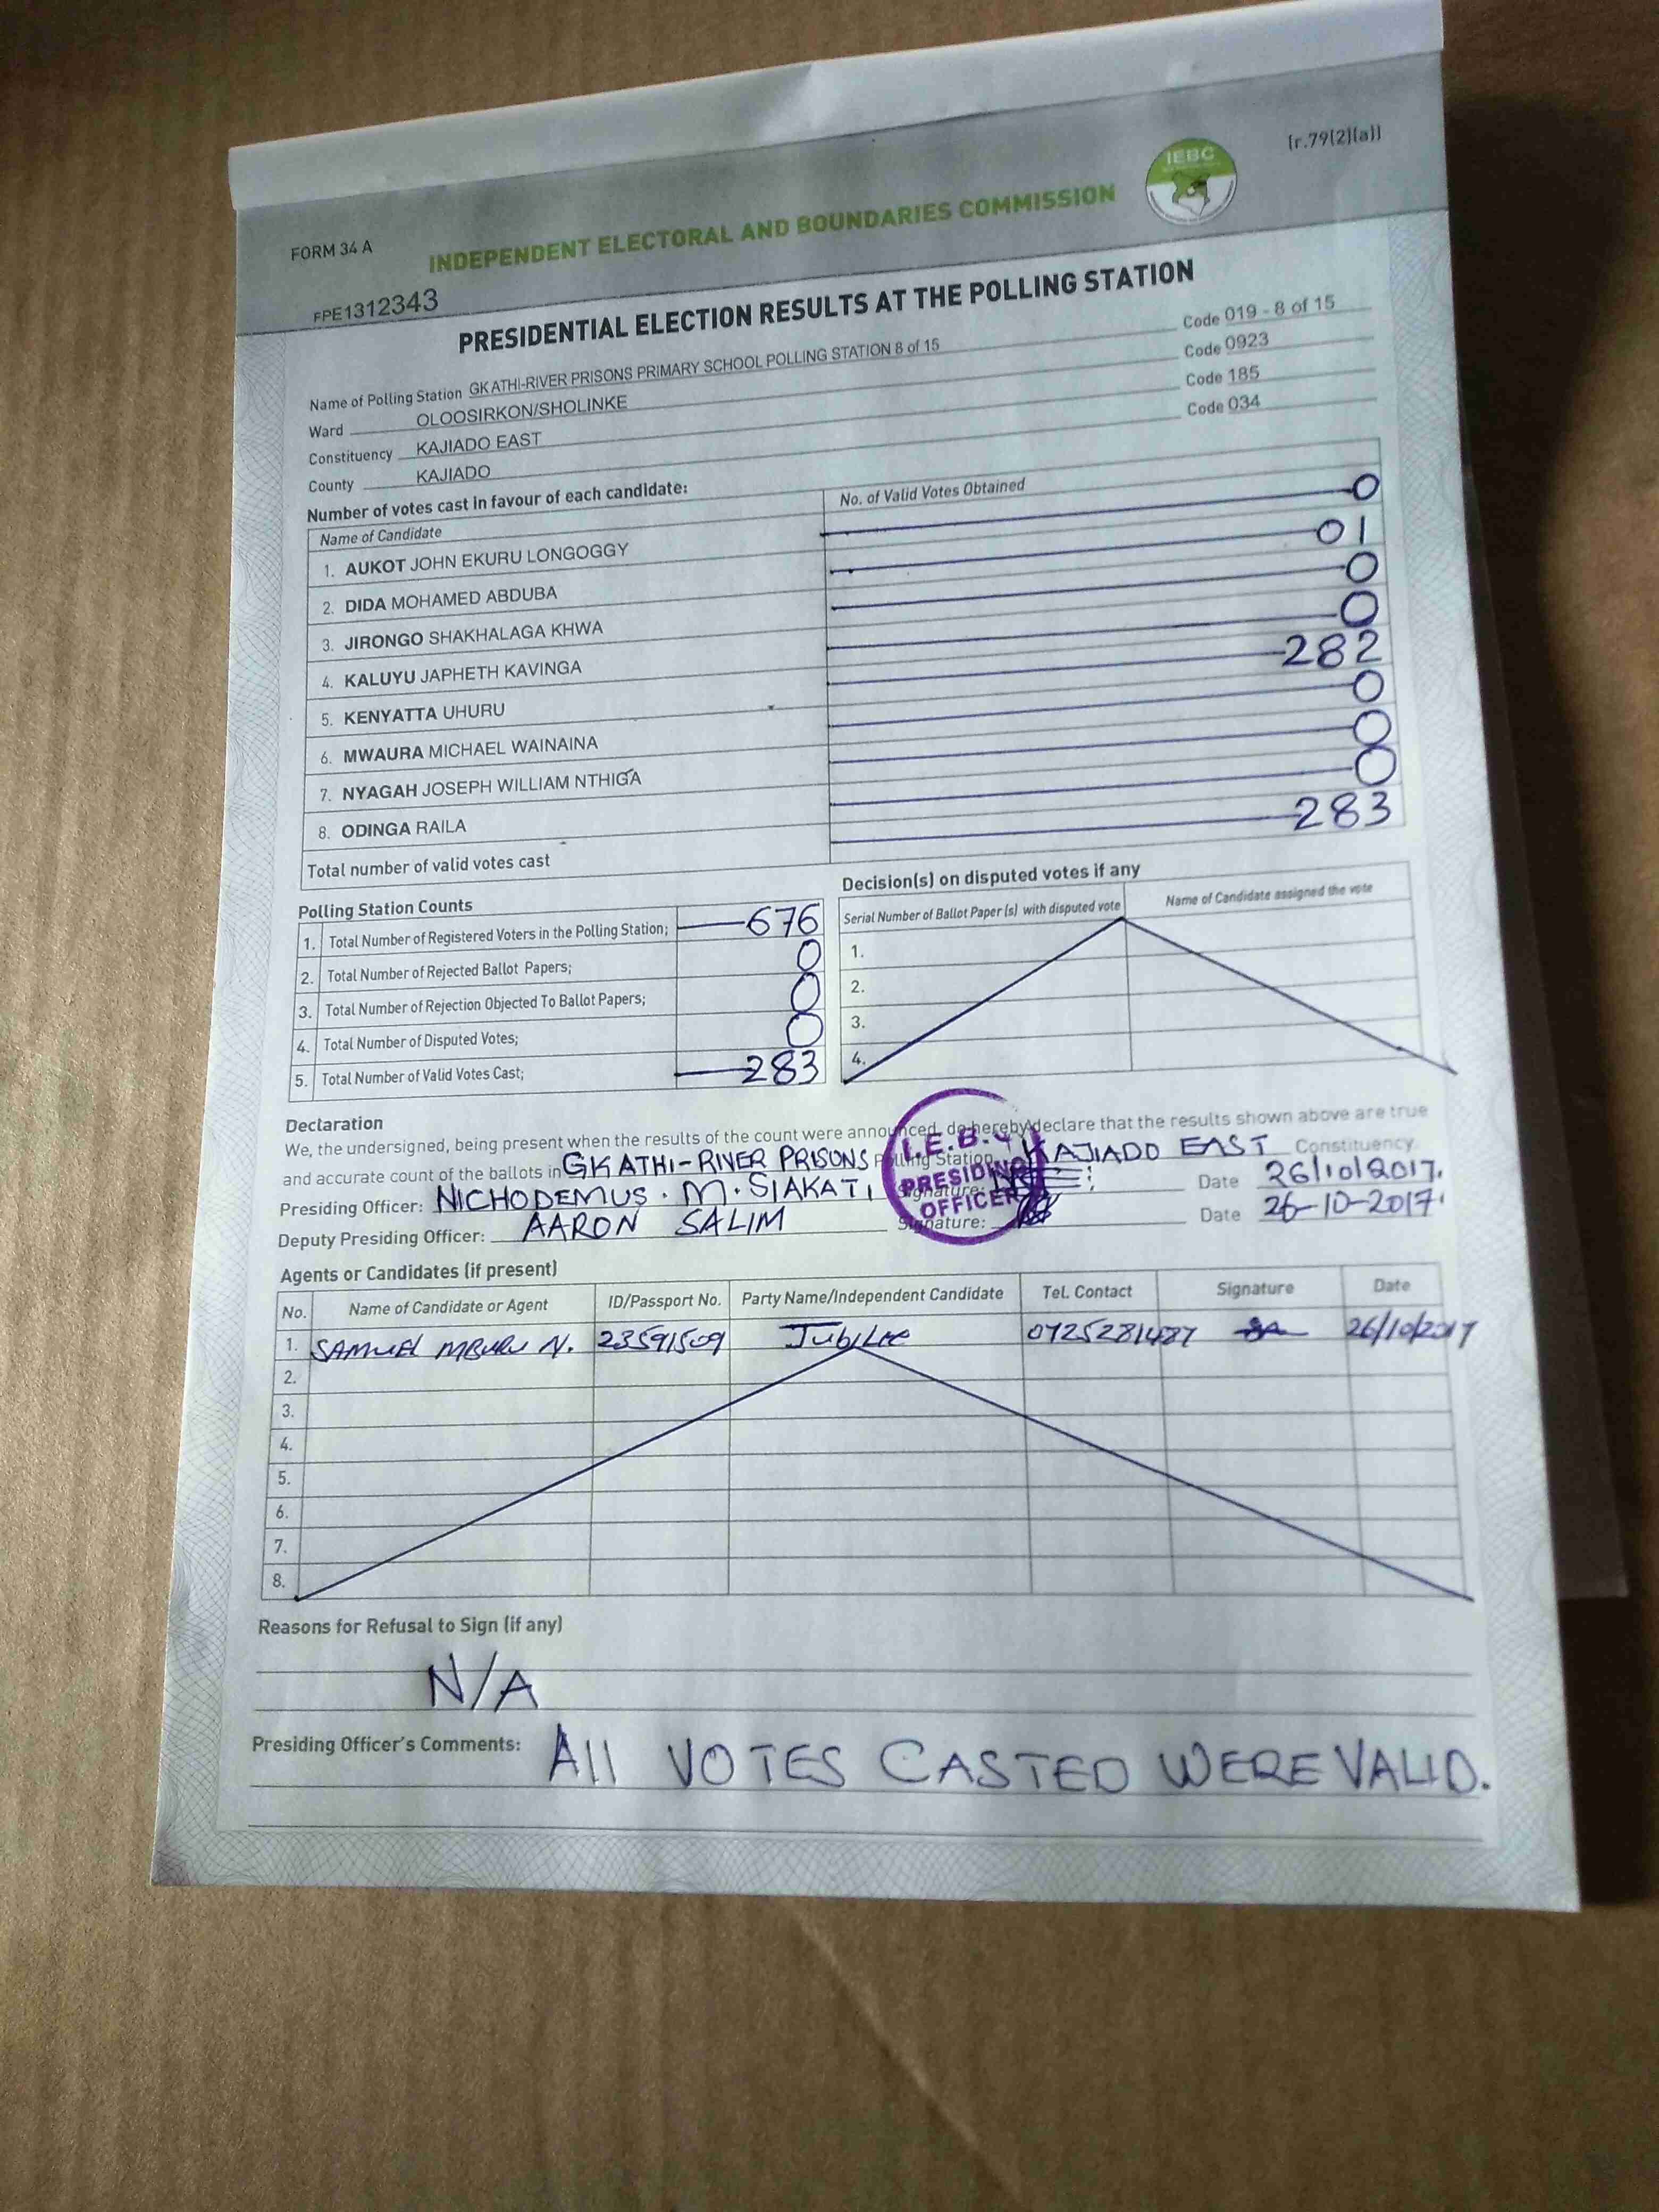 [r.79(2)(a)]
IEBC
FORM 34 A
INDEPENDENT ELECTORAL AND BOUNDARIES COMMISSION
FPE1312343
PRESIDENTIAL ELECTION RESULTS AT THE POLLING STATION
Name of Polling Station GK ATHI-RIVER PRISONS PRIMARY SCHOOL POLLING STATION 8 of 15 Code 019 - 8 of 15
Ward OLOOSIRKON/SHOLINKE Code 0923
Constituency KAJIADO EAST Code 185
County KAJIADO Code 034
Number of votes cast in favour of each candidate:
Name of Candidate No. of Valid Votes Obtained
1. AUKOT JOHN EKURU LONGOGGY 0
2. DIDA MOHAMED ABDUBA 01
3. JIRONGO SHAKHALAGA KHWA 0
4. KALUYU JAPHETH KAVINGA 0
5. KENYATTA UHURU 282
6. MWAURA MICHAEL WAINAINA 0
7. NYAGAH JOSEPH WILLIAM NTHIGA 0
8. ODINGA RAILA 0
Total number of valid votes cast 283
Polling Station Counts
1. Total Number of Registered Voters in the Polling Station; 676
2. Total Number of Rejected Ballot Papers; 0
3. Total Number of Rejection Objected To Ballot Papers; 0
4. Total Number of Disputed Votes; 0
5. Total Number of Valid Votes Cast; 283
Decision(s) on disputed votes if any
Serial Number of Ballot Paper (s) with disputed vote Name of Candidate assigned the vote
1.
2.
3.
4.
Declaration
We, the undersigned, being present when the results of the count were announced, do hereby declare that the results shown above are true
and accurate count of the ballots in GK ATHI-RIVER PRISONS Polling Station, KAJIADO EAST Constituency
Presiding Officer: NICHODEMUS . M . SIAKATI Signature: Date 26/10/2017.
Deputy Presiding Officer: AARON SALIM Signature: Date 26-10-2017.
I.E.B.C
PRESIDING
OFFICER
Agents or Candidates (if present)
No. Name of Candidate or Agent ID/Passport No. Party Name/Independent Candidate Tel. Contact Signature Date
1. SAMUEL MBURU N. 23591509 Jubilee 0725281487 26/10/2017
2.
3.
4.
5.
6.
7.
8.
Reasons for Refusal to Sign (if any)
N/A
Presiding Officer's Comments: All VOTES CASTED WERE VALID.